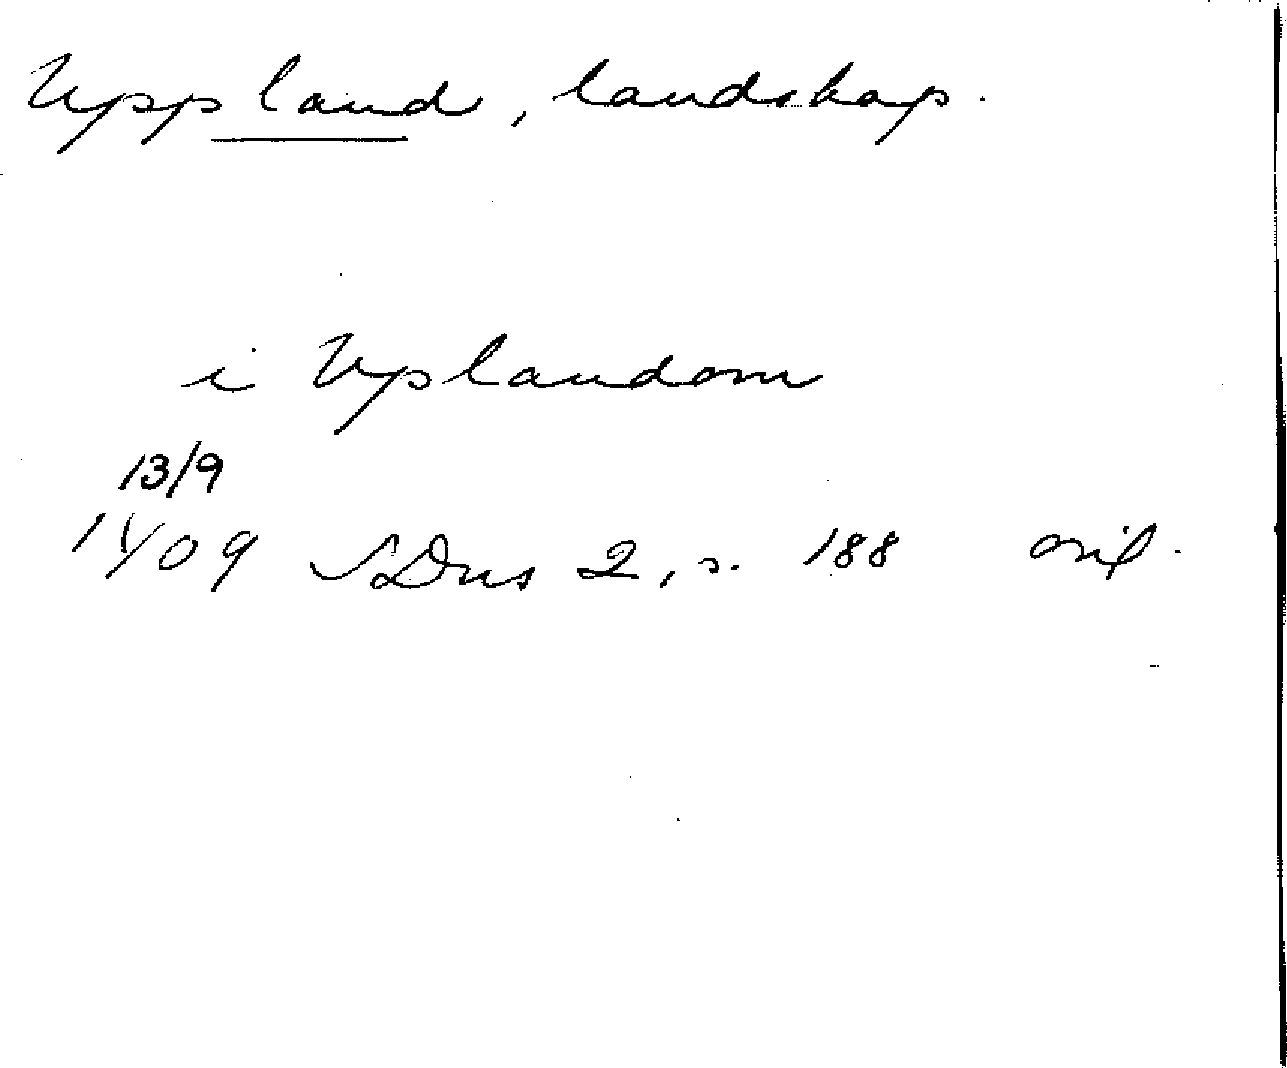 Uppland, landskap.
i Uplandom
13/9
1409 SDns 2, s. 188 oril.